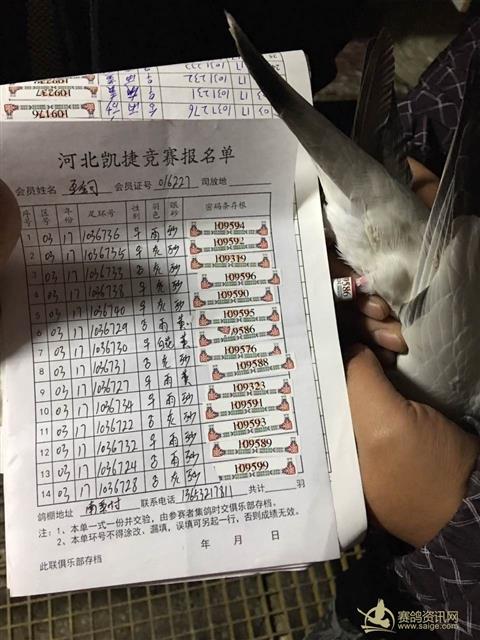 109237
17 1031232
17 1031231
03 17 1037276
109176
河北凯捷竞赛报名单
会员姓名 会员证号 016227 司放地
序号 区号 年份 足环号 性别 羽色 眼砂 密码条存根
1 03 17 1036736 雨 砂 109594
2 03 17 1036735 雨 砂 109592
3 03 17 1036733 灰 砂 109319
4 03 17 1036738 灰 砂 109596
5 03 17 1036740 灰 砂 109590
6 03 17 1036729 雨 黄 109595
7 03 17 1036730 黄 9586
8 03 17 1036731 灰 砂 109576
9 03 17 1036727 雨 黄 109588
10 03 17 1036734 灰 砂 109323
11 03 17 1036722 灰 砂 109591
12 03 17 1036732 雨 砂 109593
13 03 17 1036724 雨 砂 109589
14 03 17 1036728 灰 砂 109599
鸽棚地址 联系电话 13653217811 共计 羽
注：1、本单一式一份并交验，由参赛者集鸽时交俱乐部存档。
2、本单环号不得涂改、漏填，误填可另起一行，否则成绩无效。
年 月 日
此联俱乐部存档
9586
赛鸽资讯网
www.saige.com